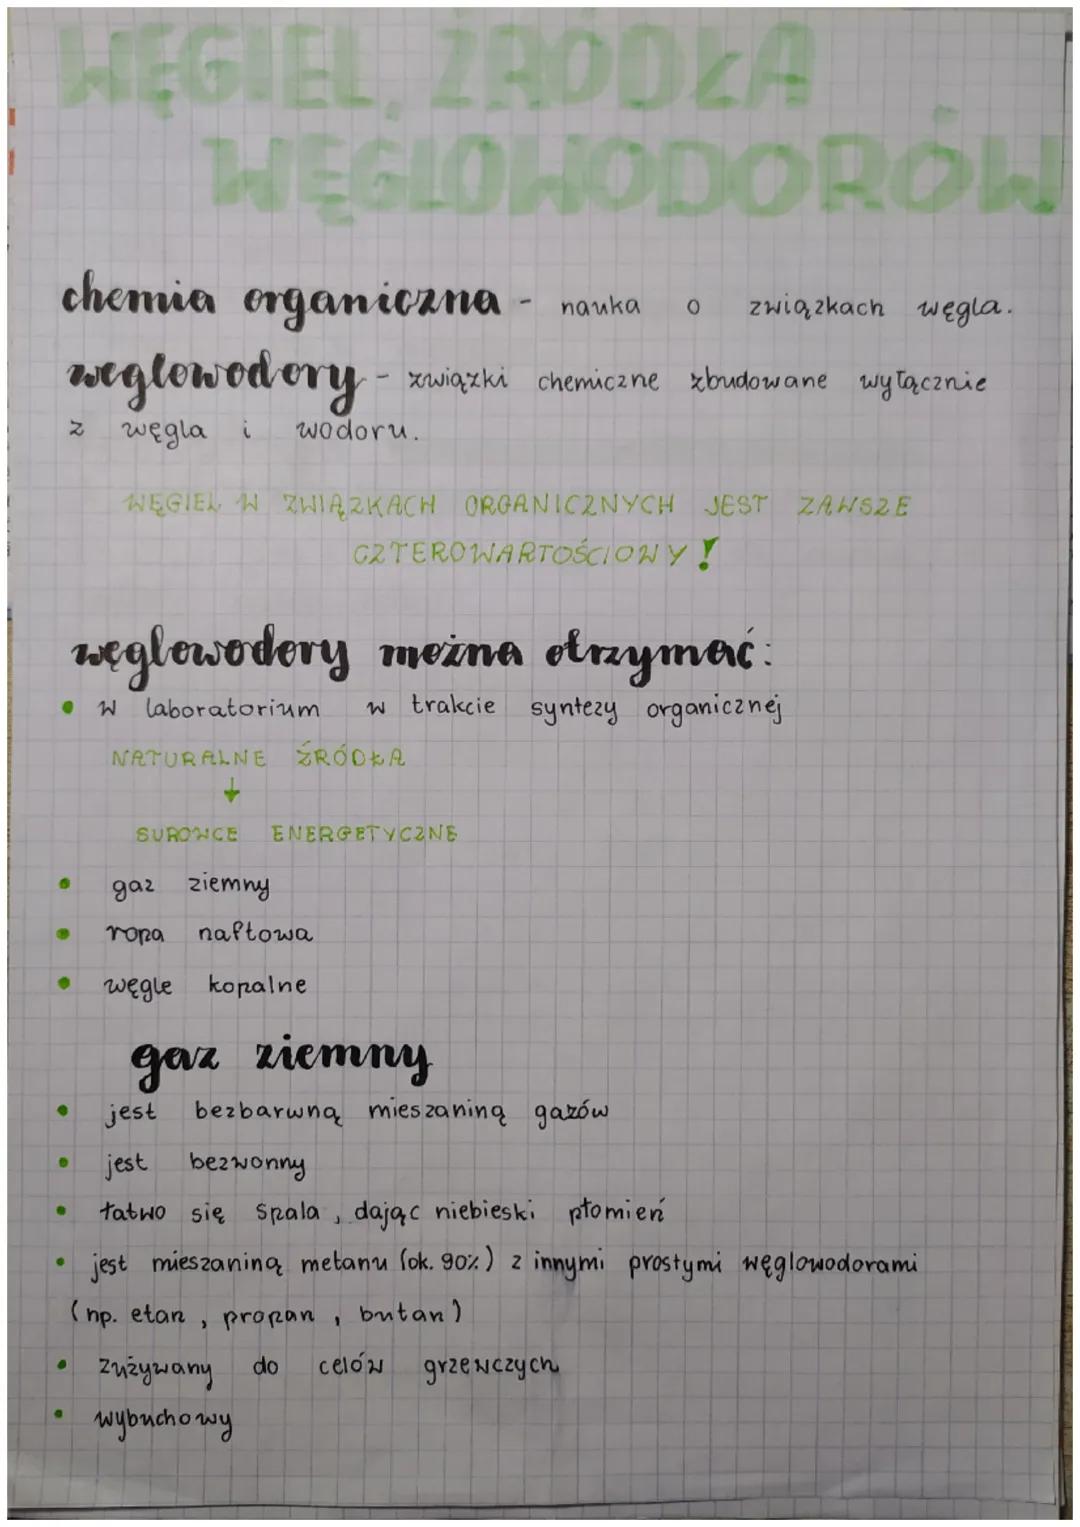 WĘGIEL, ŹRÓDŁA
WĘGLOWODORÓW
chemia organiczna - nauka o związkach węgla.
węglowodory - związki chemiczne zbudowane wyłącznie
z węgla i wodoru.
WĘGIEL W ZWIĄZKACH ORGANICZNYCH JEST ZAWSZE
CZTEROWARTOŚCIOWY!
węglowodory można otrzymać:
• w laboratorium w trakcie syntezy organicznej
NATURALNE ŹRÓDŁA
↓
SUROWCE ENERGETYCZNE
• gaz ziemny
• ropa naftowa
• węgle kopalne
gaz ziemny
• jest bezbarwną mieszaniną gazów
• jest bezwonny
• łatwo się spala, dając niebieski płomień
• jest mieszaniną metanu (ok. 90%) z innymi prostymi węglowodorami
(np. etan, propan, butan)
• zużywany do celów grzewczych
• wybuchowy